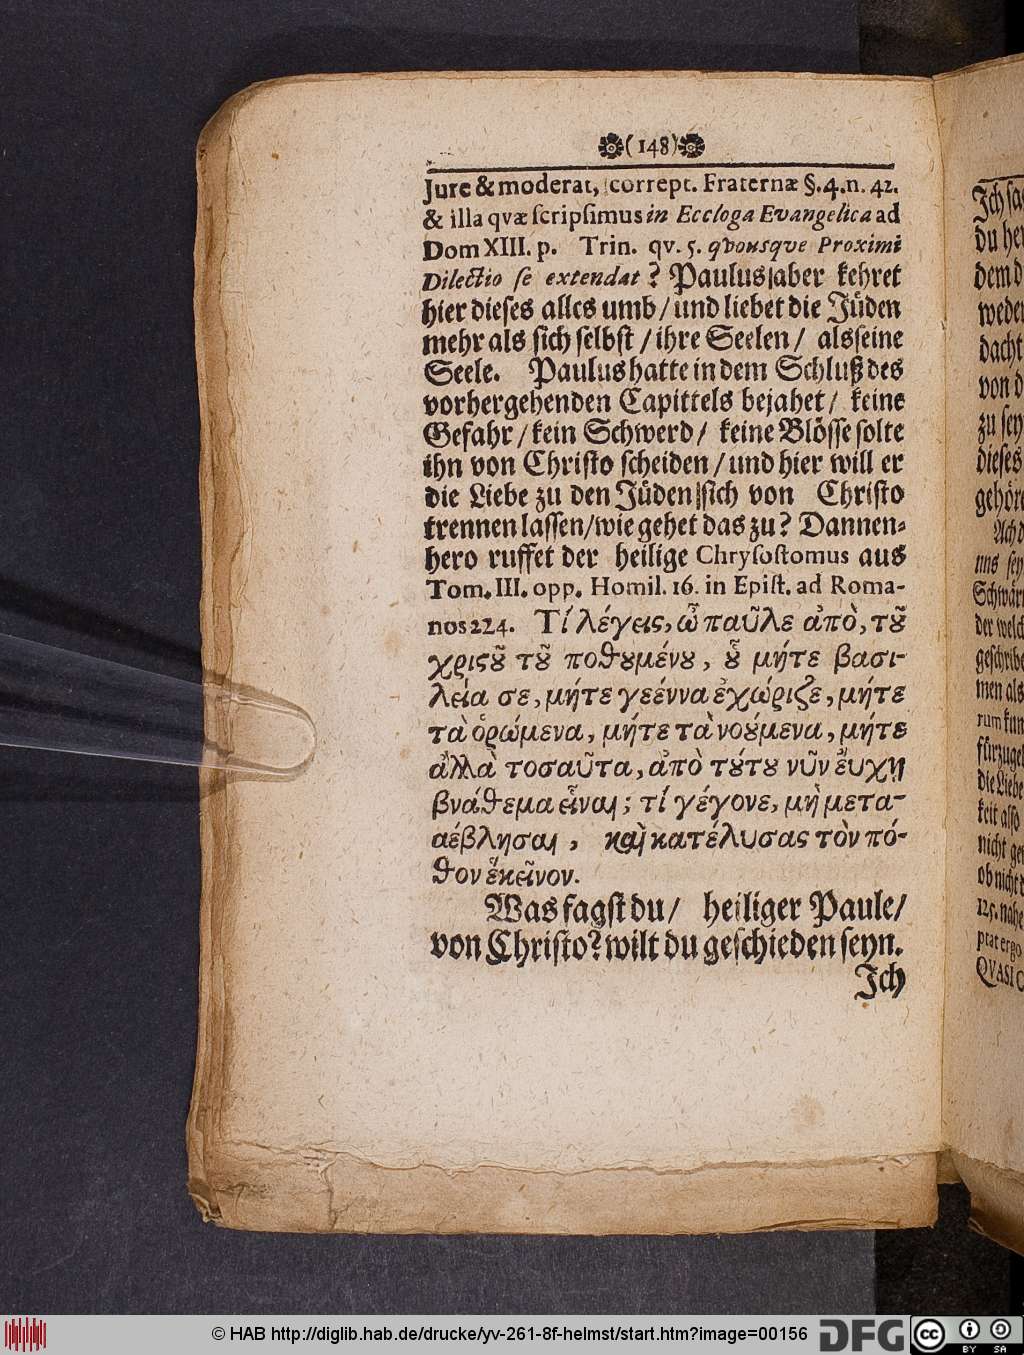 (148)
Jure & moderat, corrept. Fraternæ §. 4. n. 42.
& illa qvæ scripsimus in Eccloga Evangelica ad
Dom XIII. p. Trin. qv. 5. qvousqve Proximi
Dilectio se extendat? Paulus aber kehret
hier dieses alles umb / und liebet die Jüden
mehr als sich selbst / ihre Seelen / als seine
Seele. Paulus hatte in dem Schluß des
vorhergehenden Capittels bejahet / keine
Gefahr / kein Schwerd / keine Blösse solte
ihn von Christo scheiden / und hier will er
die Liebe zu den Jüden sich von Christo
trennen lassen / wie gehet das zu? Dannen-
hero ruffet der heilige Chrysostomus aus
Tom. III. opp. Homil. 16. in Epist. ad Roma-
nos 224. Τί λέγεις, ὦ παῦλε ἀπὸ, τȣ͂
χριϛȣ͂ τȣ͂ ποθȣμένȣ, ȣ͗͂ μήτε βασι-
λεία σε, μήτε γεέννα ἐχώριζε, μήτε
τὰ ὁρώμενα, μήτε τὰ νοȣ́μενα, μήτε
ἀλλὰ τοσαῦτα, ἀπὸ τȣ́τȣ νῦν ἔυχῃ
βνάθεμα εἶναι; τί γέγονε, μὴ μετα-
αέβλησαι, καὶ κατέλυσας τὸν πό-
θον ἔκεῖνον.
Was sagst du / heiliger Paule /
von Christo? wilt du geschieden seyn.
Ich
Ich sa
du he
dem d
wede
dacht
von d
zu sey
dieses
gehöre
Ach d
uns sey
Schwär
der welch
geschribe
men als
rum kun
fürzuge
die Liebe
keit also
nicht ge
ob nicht
125. nahe
ptat ergo
QVASI
© HAB http://diglib.hab.de/drucke/yv-261-8f-helmst/start.htm?image=00156
DFG
cc
BY SA